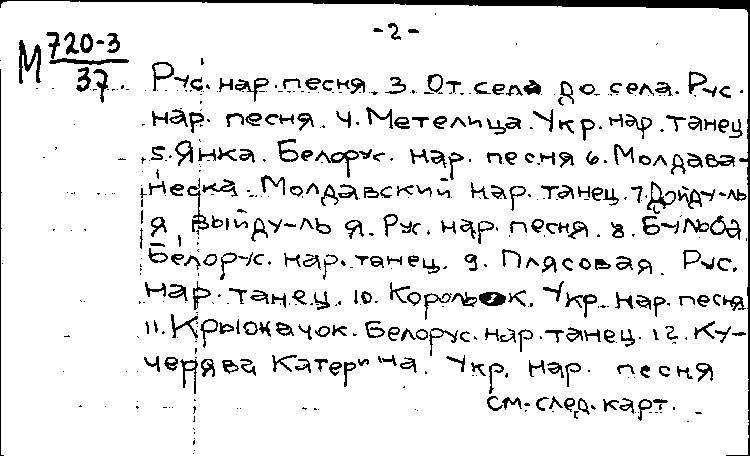 -2-
М 720-3
37.
Рус. нар. песня. 3. От села до села. Рус.
нар. песня. 4. Метелица. Укр. нар. танец
5. Янка. Белорус. нар. песня 6. Молдава-
неска. Молдавский нар. танец. 7. Дойду-ль
я, выйду-ль я. Рус. нар. песня. 8. Бульба.
Белорус. нар. танец. 9. Плясовая. Рус.
нар. танец. 10. Корольок. Укр. нар. песня
11. Крыжачок. Белорус. нар. танец. 12. Ку-
черява Катерина. Укр. нар. песня
см. след. карт.